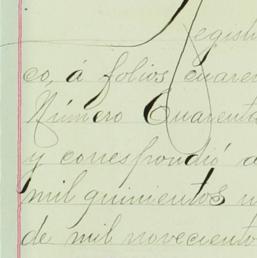 Registr
co, á folios cuaren
Número Cuarenta
y correspondió a
mil quinientos u
de mil noveciento